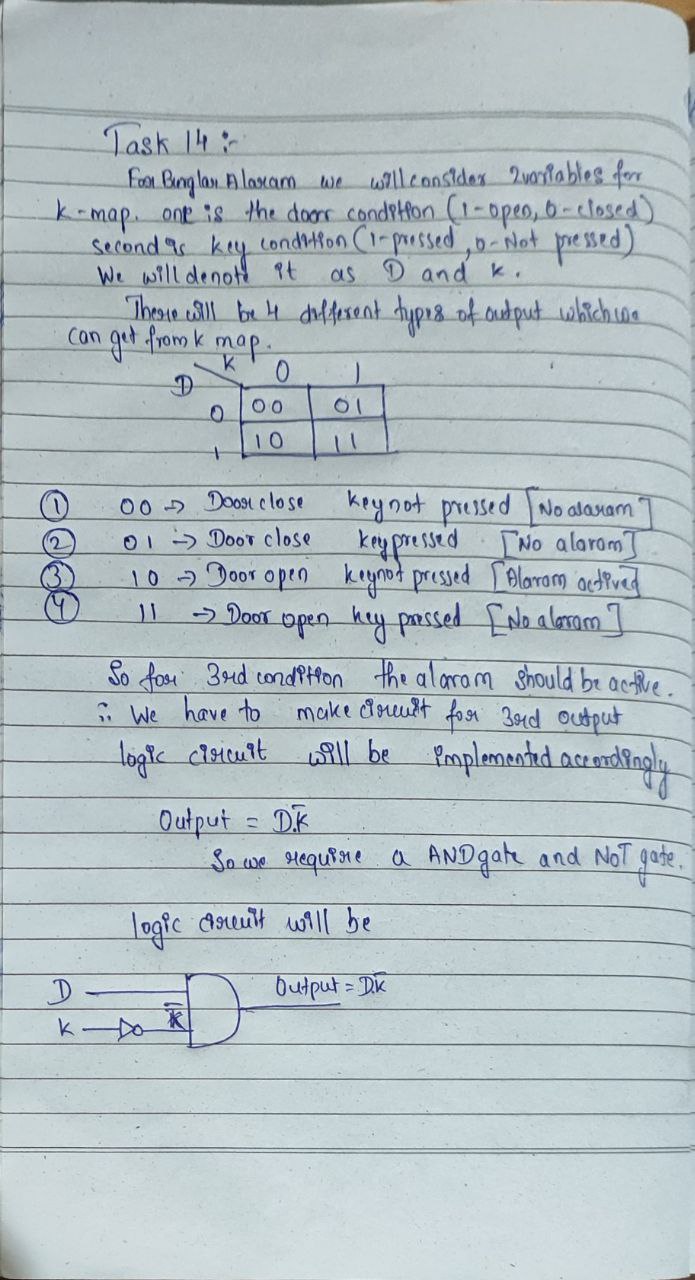 Task 14 :-
For Burglar Alaram we will consider 2 variables for
k-map. one is the door condition (1-open, 0-closed)
second is key condition (1-pressed, 0-Not pressed)
We will denote it as D and k.
There will be 4 different types of output which we
can get from k map.
K 0 1
D
0 00 01
1 10 11
① 00 → Door close key not pressed [No alaram]
② 01 → Door close key pressed [No alaram]
③ 10 → Door open key not pressed [Alaram actived]
④ 11 → Door open key pressed [No alaram]
So for 3rd condition the alaram should be active.
∴ We have to make circuit for 3rd output
logic circuit will be implemented accordingly
Output = D.K̅
So we require a AND gate and NOT gate.
logic circuit will be
D Output = DK̅
K K̅